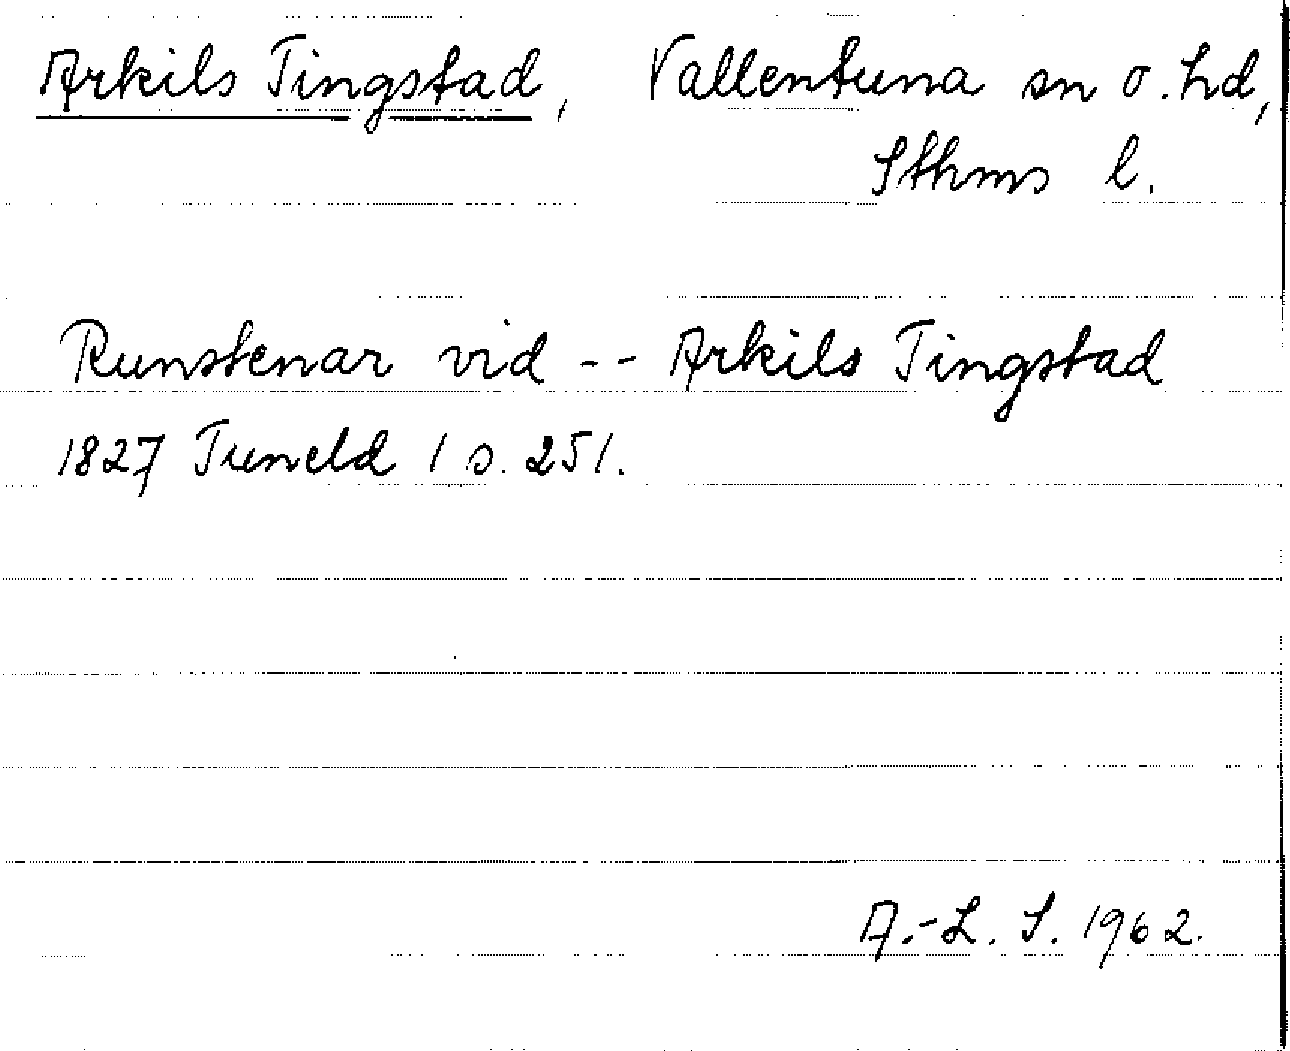 Arkils Tingstad, Vallentuna sn o. hd,
Sthms l.
Runstenar vid -- Arkils Tingstad
1827 Tuneld 1 s. 251.
A.-L. S. 1962.